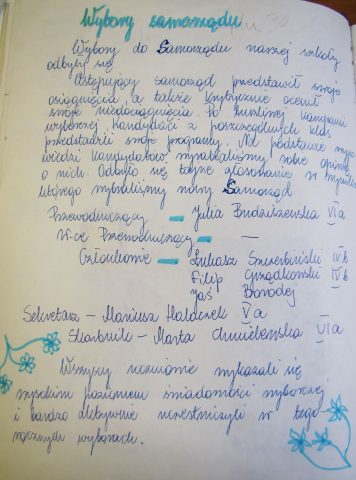 Wybory samorządu
Wybory do Samorządu naszej szkoły
odbyły się
Ustępujący samorząd przedstawił swoje
osiągnięcia, a także krytycznie ocenił
swoje niedociągnięcia. Po burzliwej kampanii
wyborczej kandydaci z poszczególnych klas
przedstawili swoje programy. Na podstawie wypo-
wiedzi kandydatów wyrabialiśmy sobie opinię
o nich. Odbyło się tajne głosowanie w wyniku
którego wybraliśmy nowy Samorząd
Przewodniczący – Julia VI a
V-ce Przewodniczący – –
Członkowie – Łukasz Szczerbiński IV b
Filip IV b
Jaś
Sekretarz – Mariusz V a
Skarbnik – Marta Chmielewska VI a
Wszyscy uczniowie wykazali się
wysokim poziomem świadomości wyborczej
i bardzo aktywnie uczestniczyli w tego-
rocznych wyborach.